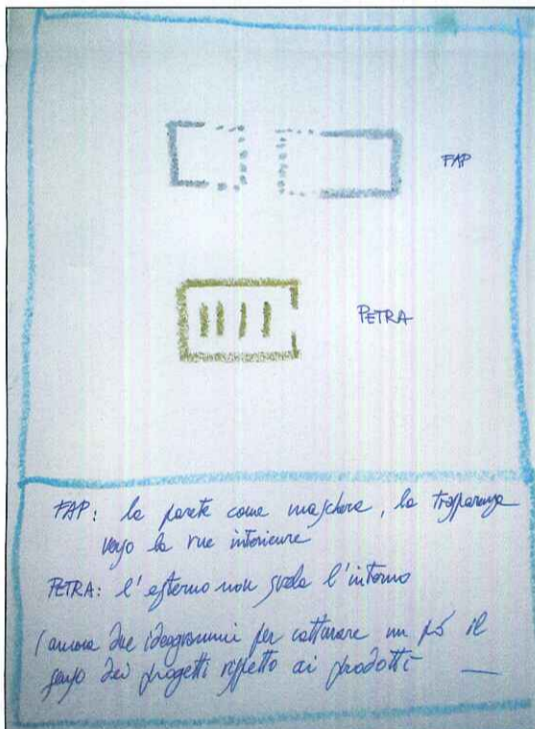 FAP
PETRA
FAP: la parete come maschera, la trasparenza
verso la rue intérieure
PETRA: l'esterno non svela l'interno
(ancora due ideogrammi per catturare un pò il
senso dei progetti rispetto ai prodotti —